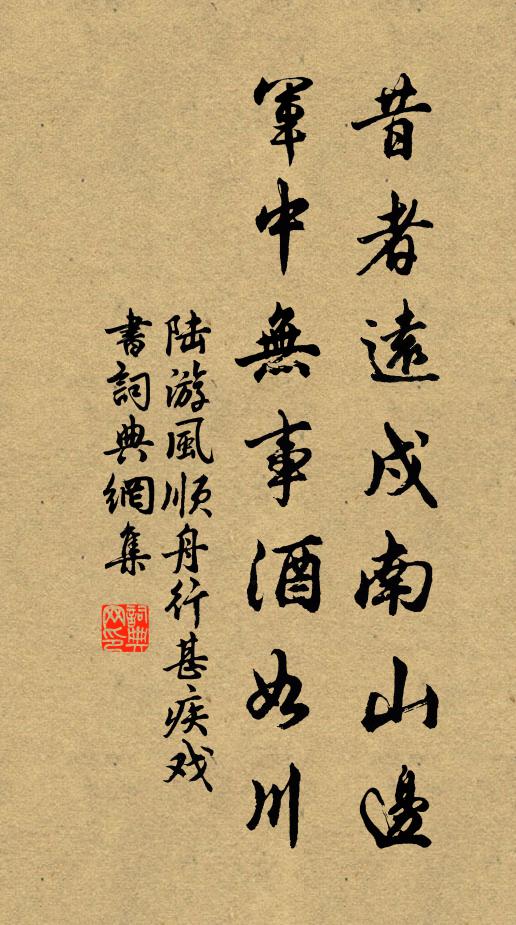 昔者遠戍南山邊
軍中無事酒如川
陆游風顺舟行甚疾戏
書詞典網集
詞典網印